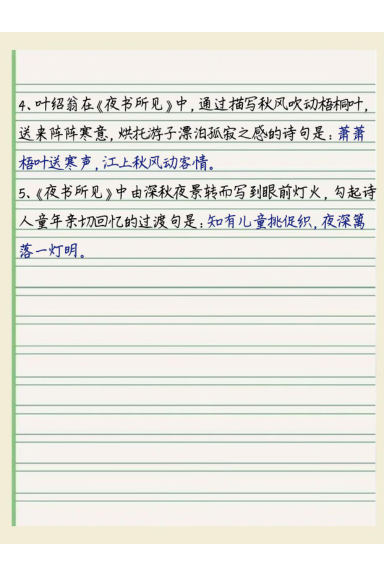 4、叶绍翁在《夜书所见》中,通过描写秋风吹动梧桐叶,
送来阵阵寒意,烘托游子漂泊孤寂之感的诗句是:萧萧
梧叶送寒声,江上秋风动客情。
5、《夜书所见》中由深秋夜景转而写到眼前灯火,勾起诗
人童年亲切回忆的过渡句是:知有儿童挑促织,夜深篱
落一灯明。